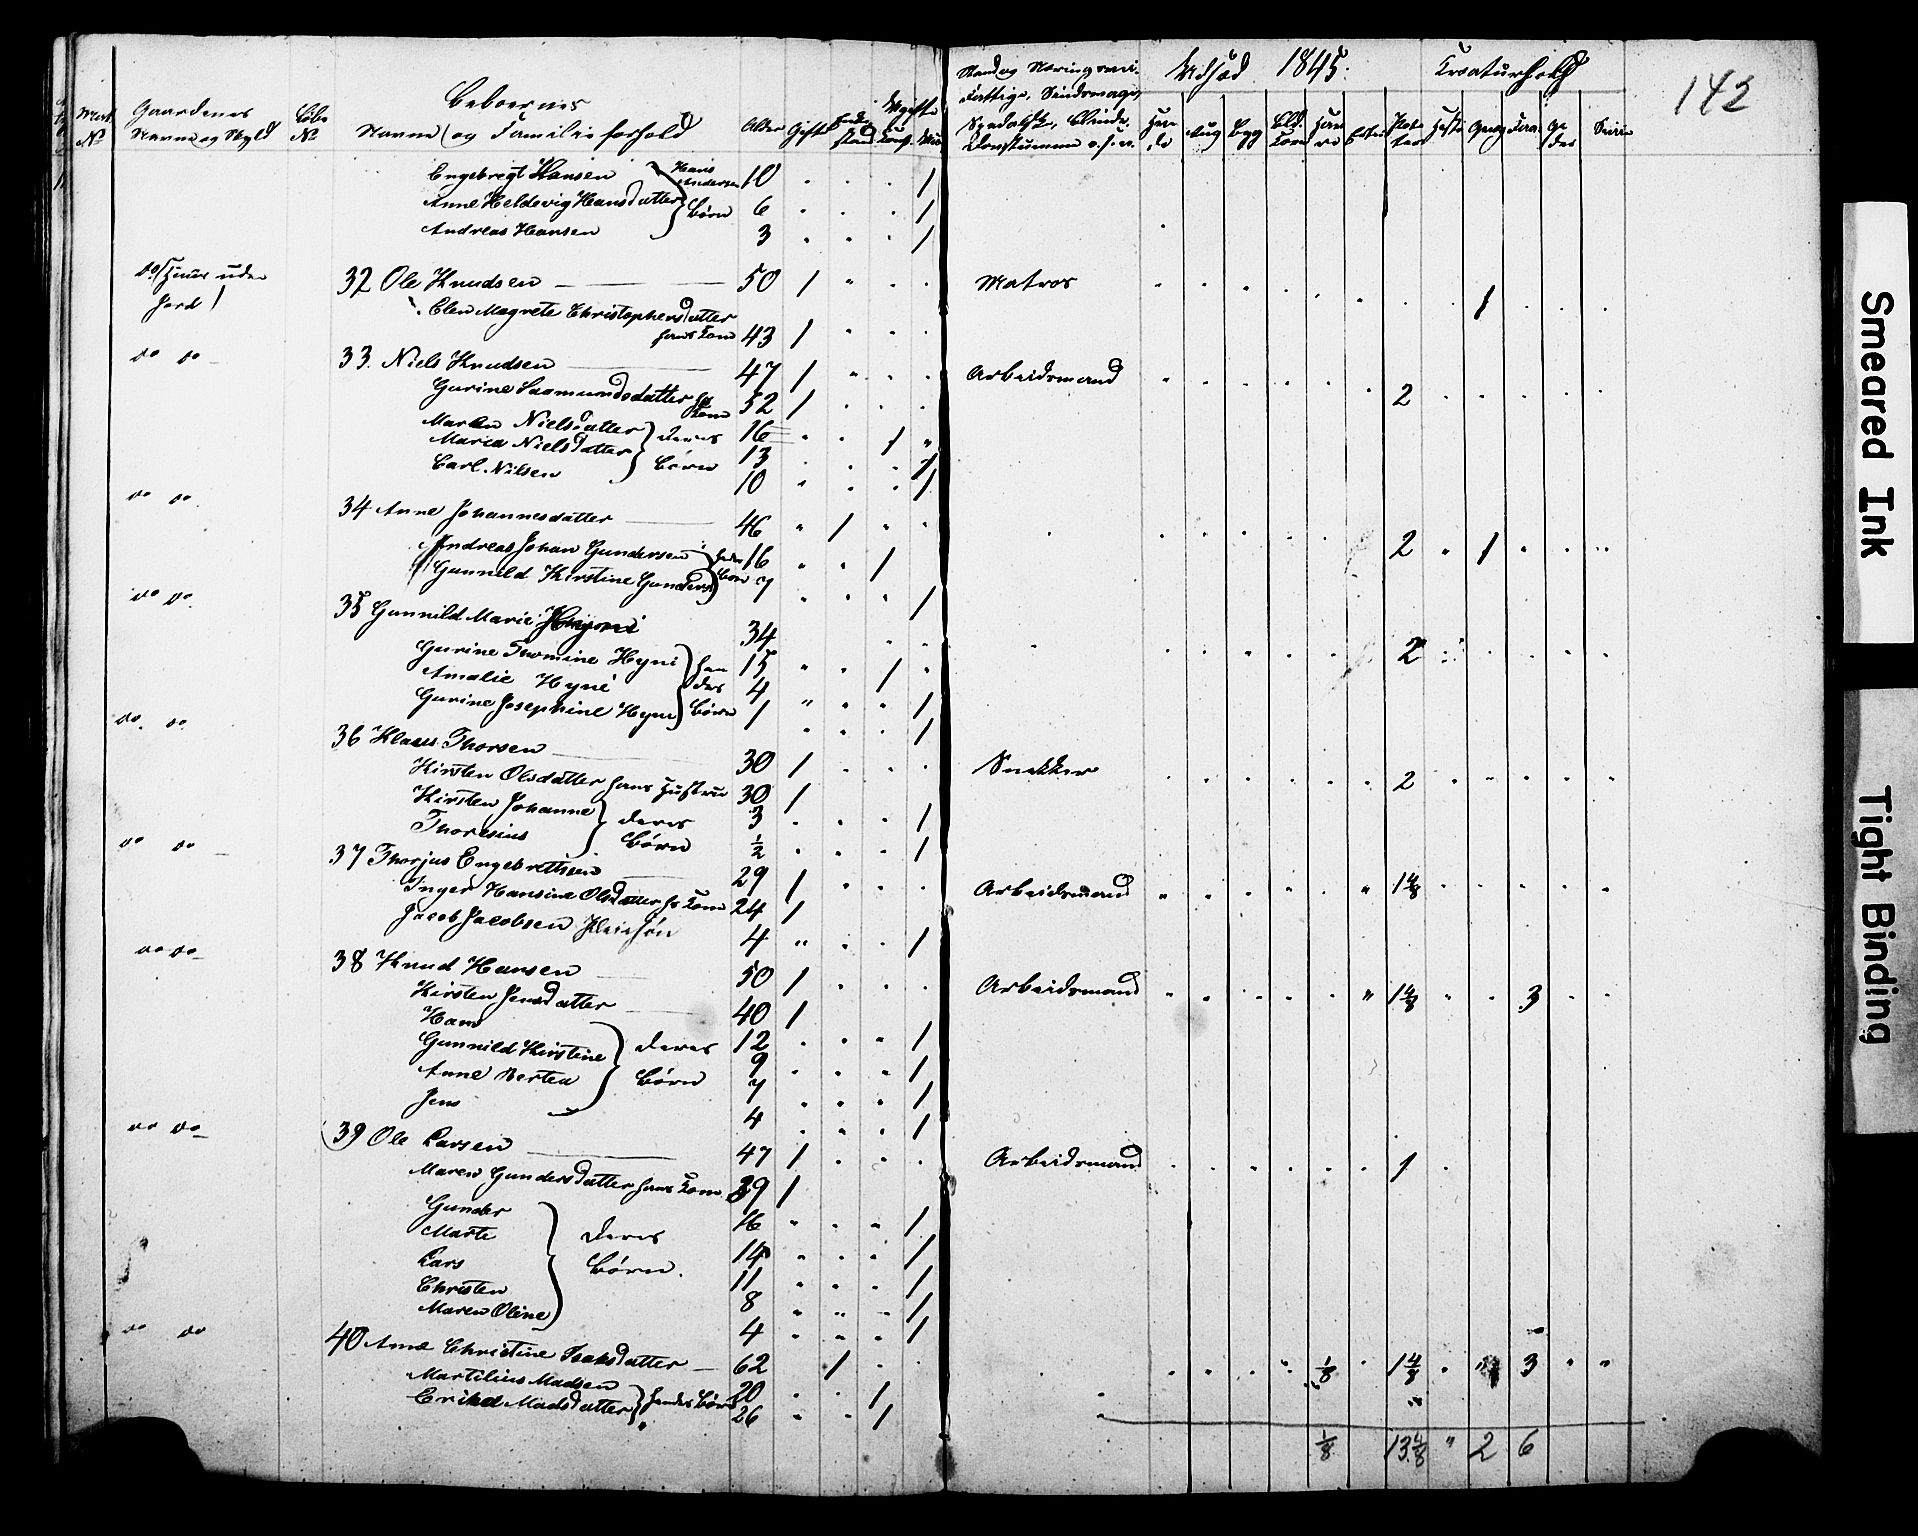 142
Udsæd 1845. Kreaturhold
Gaardenes Navne og Skyld
Beboernes Navne og Familieforhold
Alder Gift
Engebregt Hansen Hans Andersen 10 1
Anne Heldevig Hansdatter Børn 6 1
Andreas Hansen 3 1
do Huus uden Jord 32 Ole Knudsen 50 1 Matros 1
Elen Magrete Christophersdatter
hans Kone 43 1
do do 33. Niels Knudsen 47 1 Arbeidsmand 2
Gurine Saamundsdatter Kone 52 1
Maren Nielsdatter deres 16 1
Maria Nielsdatter 13 1
Carl Nilsen Børn 10 1
do do 34 Anne Johannesdatter 46 1 2 1
Andreas Johan Gundersen 16 1
Gunnild Kirstine Gunders Børn 7 1
do do 35 Gunnild Marie 34 2
Gurine Thomine Hyni 15 1
Amalie Hyni 4 1
Gurine Josephine Hyni Børn 1 1
do. do. 36 Klaus Thorsen 30 1 Snekker 2
Kirsten Olsdatter hans Hustru 30 1
Kirsten Johanne deres 3 1
Thoresius Børn 1/2 1
do do 37 Thorjus Engebrethsen 29 1 Arbeidsmand 1 4/8
Inger Hansine Olsdatter hs Kone 24 1
Jacob Jacobsen Pleiesøn 4 1
do do 38 Knud Hansen 50 1 Arbeidsmand 1 4/8 3
Kirsten Jensdatter 40 1
Hans deres 12 1
Gunnild Kirstine 9 1
Anne Bertea Børn 7 1
Jens 4 1
do do 39 Ole Larsen 47 1 Arbeidsmand 1
Maren Gundersdatter hans Kone 39 1
Gunder 16 1
Marte deres 14 1
Lars Børn. 11 1
Christen 8 1
Maren Oline 4 1
do do 40 Anne Christine Isaksdatter 62 1 1/8 1 4/8 3
Martilius Madsen 20 1
Madsdatter hendes Børn 26 1
1/8 13 4/8 2 6
Smeared Ink
Tight Binding